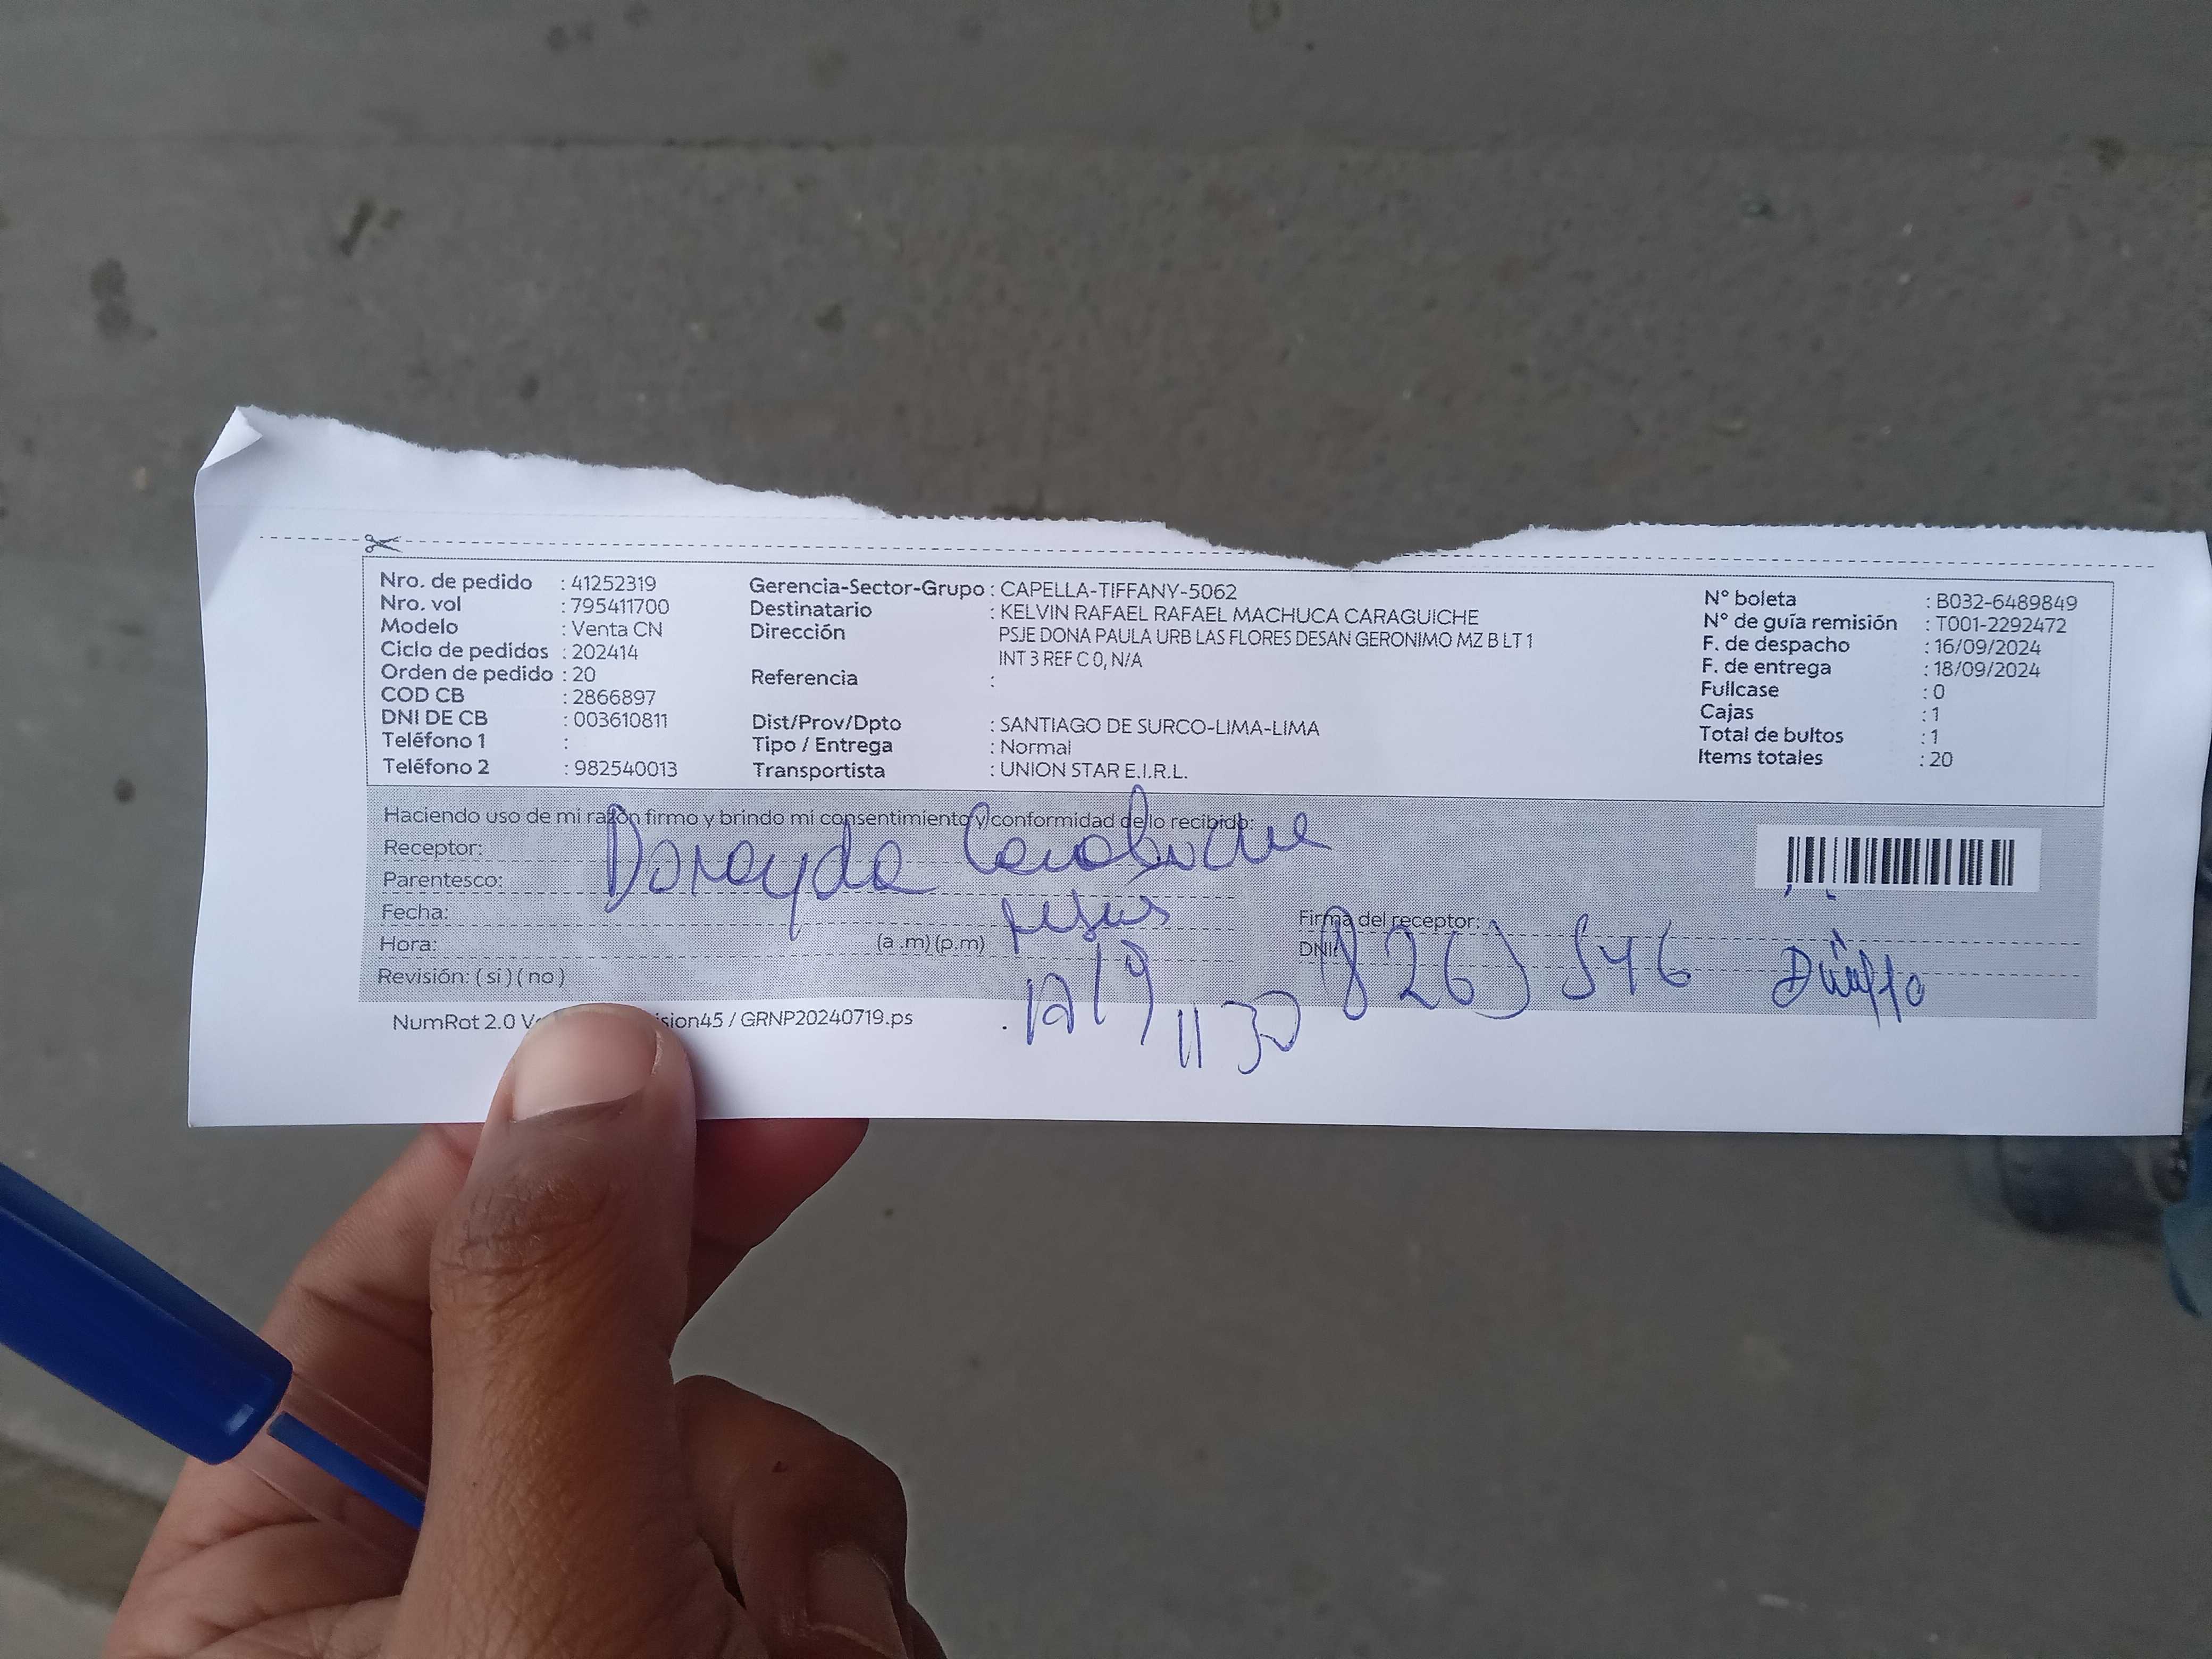 Nro. de pedido : 41252319
Nro. vol : 795411700
Modelo : Venta CN
Ciclo de pedidos : 202414
Orden de pedido : 20
COD CB : 2866897
DNI DE CB : 003610811
Teléfono 1 :
Teléfono 2 : 982540013
Gerencia-Sector-Grupo : CAPELLA-TIFFANY-5062
Destinatario : KELVIN RAFAEL RAFAEL MACHUCA CARAGUICHE
Dirección PSJE DONA PAULA URB LAS FLORES DESAN GERONIMO MZ B LT 1
INT 3 REF C 0, N/A
Referencia :
Dist/Prov/Dpto : SANTIAGO DE SURCO-LIMA-LIMA
Tipo / Entrega : Normal
Transportista : UNION STAR E.I.R.L.
N° boleta : B032-6489849
N° de guía remisión : T001-2292472
F. de despacho : 16/09/2024
F. de entrega : 18/09/2024
Fullcase : 0
Cajas : 1
Total de bultos : 1
Items totales : 20
Haciendo uso de mi razón firmo y brindo mi consentimiento y conformidad de lo recibido:
Receptor:
Parentesco:
Fecha:
Hora: (a .m) (p.m)
Revisión: ( si ) ( no )
Firma del receptor:
DNI:
NumRot 2.0 / GRNP20240719.ps